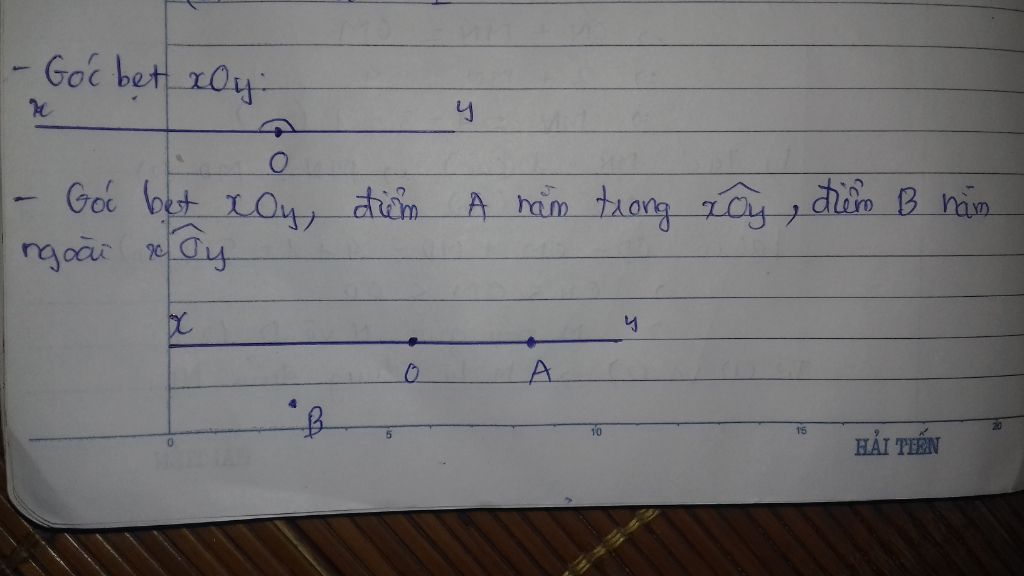 - Góc bẹt xOy:
x y
O
- Góc bẹt xOy, điểm A nằm trong xÔy, điểm B nằm
ngoài xÔy
x y
O A
B
0 5 10 15 20
HẢI TIẾN